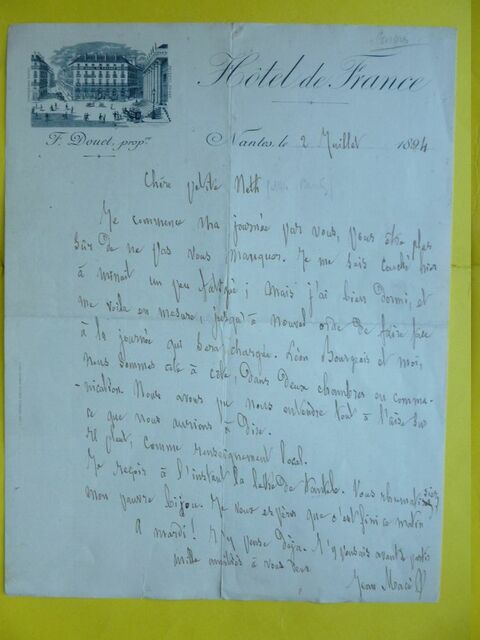 Hôtel de France
F. Douet, propre
Nantes, le 2 Juillet 1894
Chère petite Neth
Je commence ma journée par vous, pour être plus
sûr de ne pas vous manquer. Je me suis couché hier
à minuit un peu fatigué ; mais j'ai bien dormi, et
me voilà en mesure, jusqu'à nouvel ordre de faire face
à la journée qui sera chargée. Léon Bourgeois et moi,
nous sommes côte à côte, dans deux chambres en commu-
-nication. Nous avons pu nous entendre tout à l'aise sur
ce que nous aurions à dire.
Il pleut, comme renseignement local.
Je reçois à l'instant la lettre de Vous rhumati
mon pauvre bijou. Je veux espérer que c'est fini ce matin
A mardi ! J'y pense déjà. J'y pensais avant de partir
mille amitiés à vous deux
Jean Macé